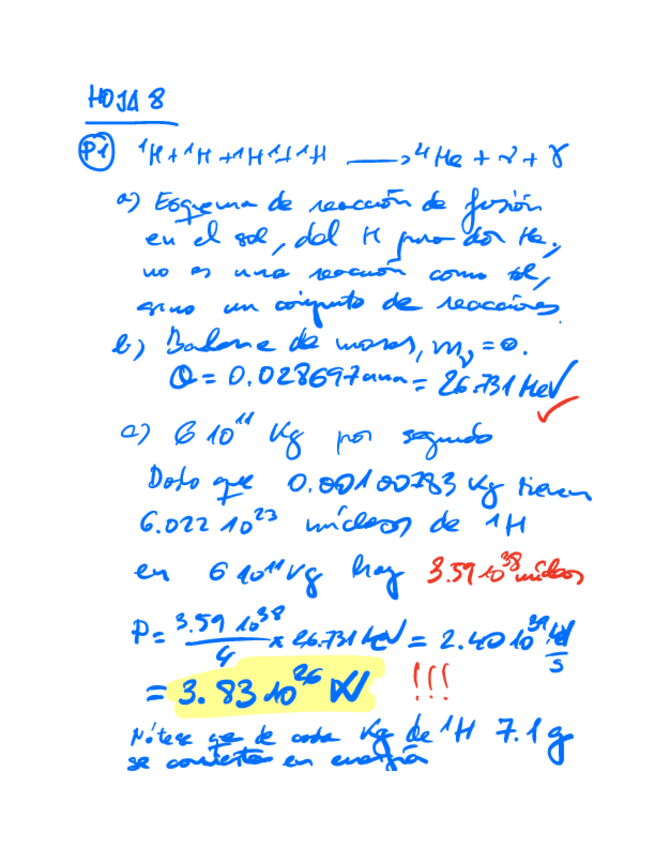 HOJA 8
P1 ¹H + ¹H + ¹H + ¹H → ⁴He + ν + γ
a) Esquema de reacción de fusión
en el sol, del H para dar He,
no es una reacción como tal,
sino un conjunto de reacciones.
b) Balance de masas, mν = 0.
Q = 0.028697 uma = 26.731 MeV ✓
c) 6 10¹¹ Kg por segundo
Dado que 0.00100783 Kg tienen
6.022 10²³ núcleos de ¹H
en 6 10¹¹ Kg hay 3.59 10³⁸ núcleos
P = 3.59 10³⁸ / 4 × 26.731 MeV = 2.40 10³⁹ / s
= 3.83 10²⁶ W !!!
Nótese que de cada Kg de ¹H 7.1 g
se convierte en energía